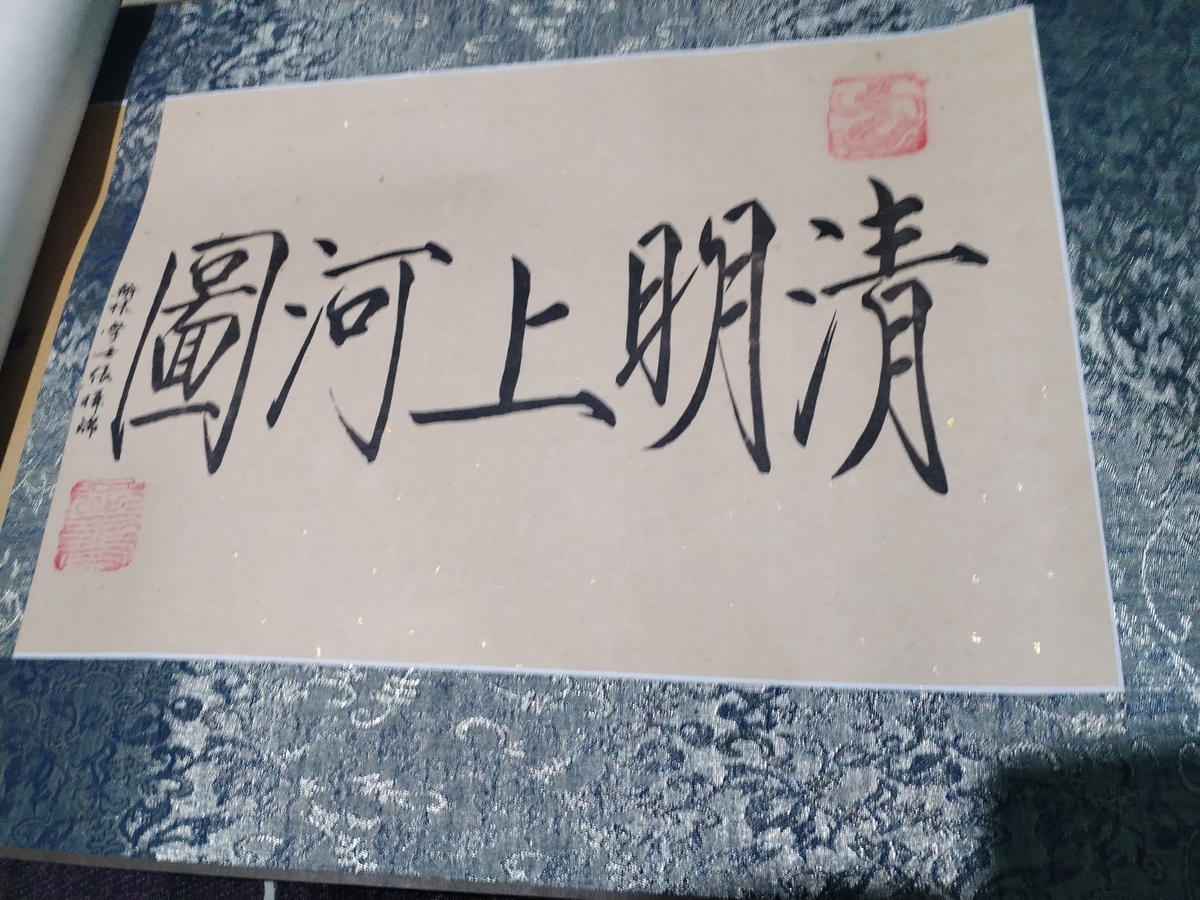 清明上河圖
翰林學士張擇端